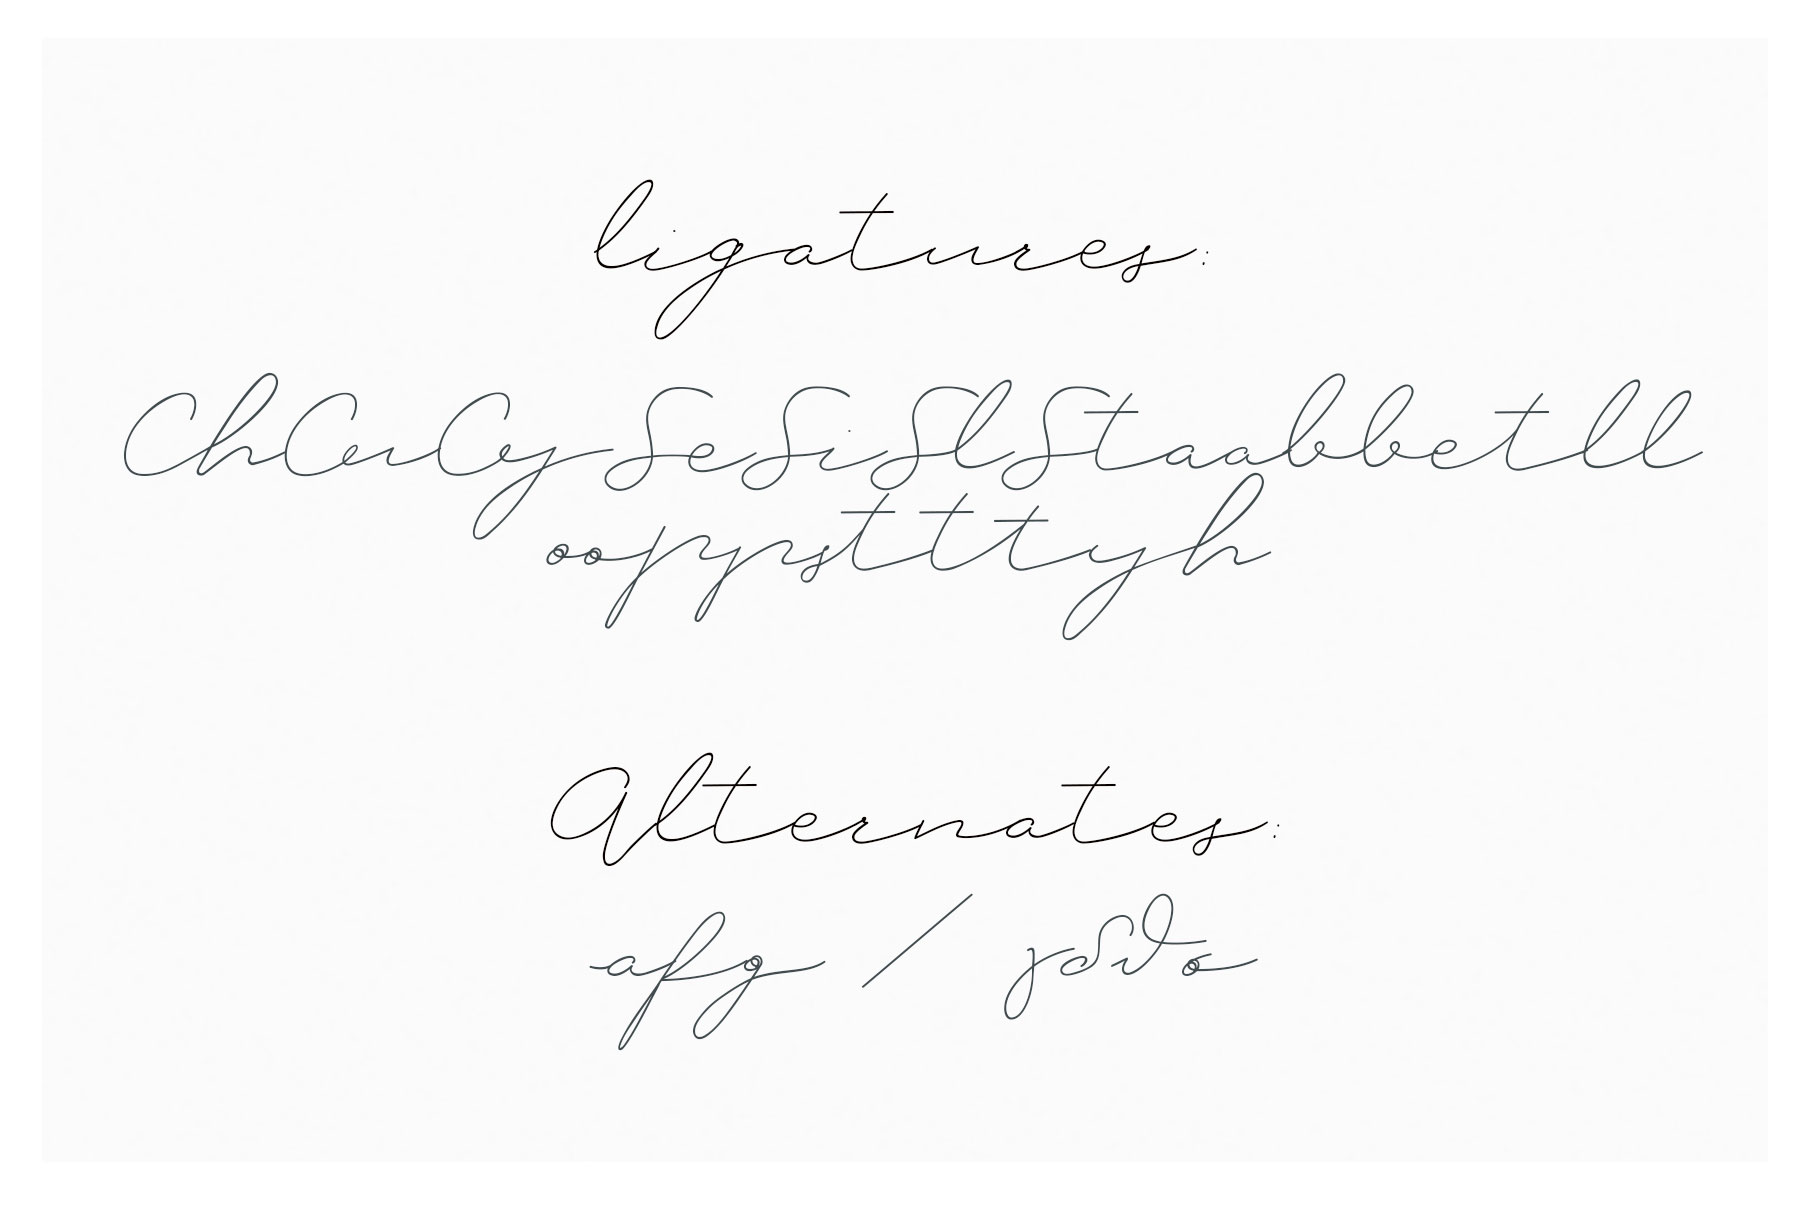 ligatures:
ChCuCySeSiSlStaabbetll
ooppstttyh
Alternates:
afg / γδϑσ